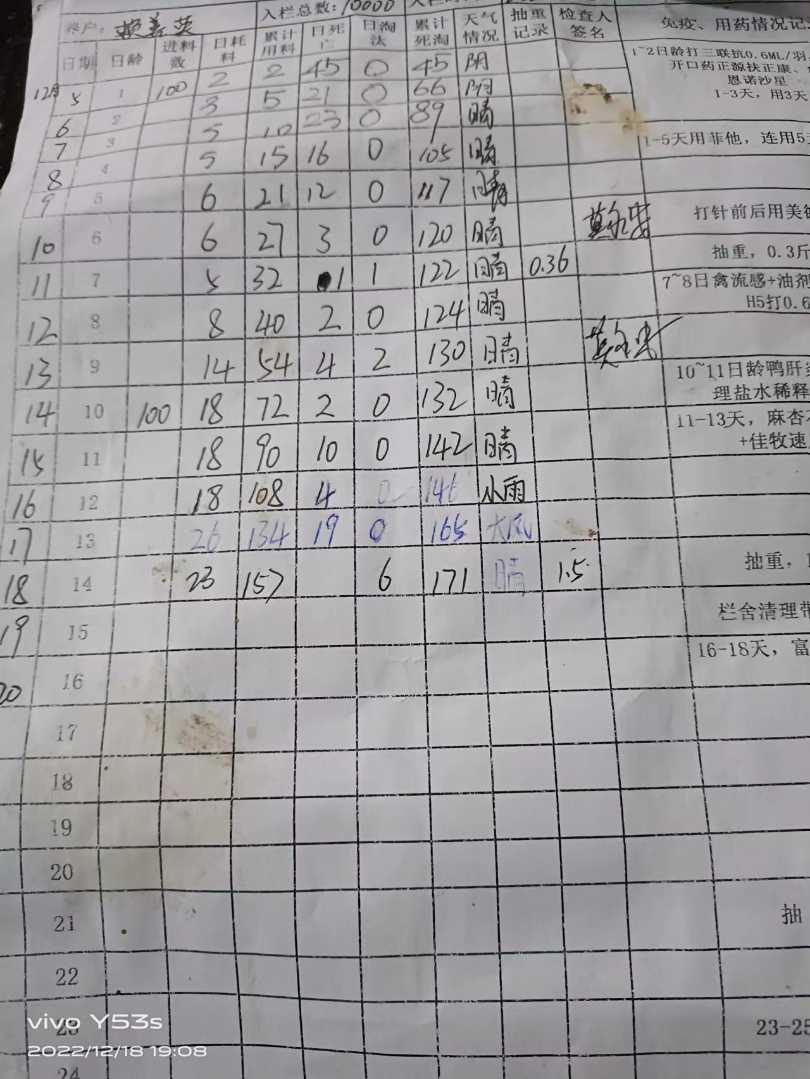 养户: 入栏总数: 10000
日期 日龄 进料数 日耗料 累计用料 日死亡 日淘汰 累计死淘 天气情况 抽重记录 检查人签名 免疫、用药情况记
12月 5 1 100 2 2 45 0 45 阴 1~2日龄打三联抗0.6ML/羽
开口药正源扶正康、
恩诺沙星
1-3天，用3天
6 2 3 5 21 0 66 阴
7 3 5 10 23 0 89 晴
8 4 5 15 16 0 105 晴 1-5天用菲他，连用5
9 5 6 21 12 0 117 晴
10 6 6 27 3 0 120 晴 打针前后用美
11 7 5 32 1 1 122 晴 0.36 抽重，0.3斤
12 8 8 40 2 0 124 晴 7~8日禽流感+油剂
H5打0.6
13 9 14 54 4 2 130 晴
14 10 100 18 72 2 0 132 晴 10~11日龄鸭肝
理盐水稀释
15 11 18 90 10 0 142 晴 11-13天，麻杏
+佳牧速
16 12 18 108 4 0 146 小雨
17 13 26 134 19 0 165 大风
18 14 23 157 6 171 晴 1.5 抽重，
19 15 栏舍清理带
20 16 16-18天，富
17
18
19
20
21 抽
22
23 23-25
24
vivo Y53s
2022/12/18 19:08